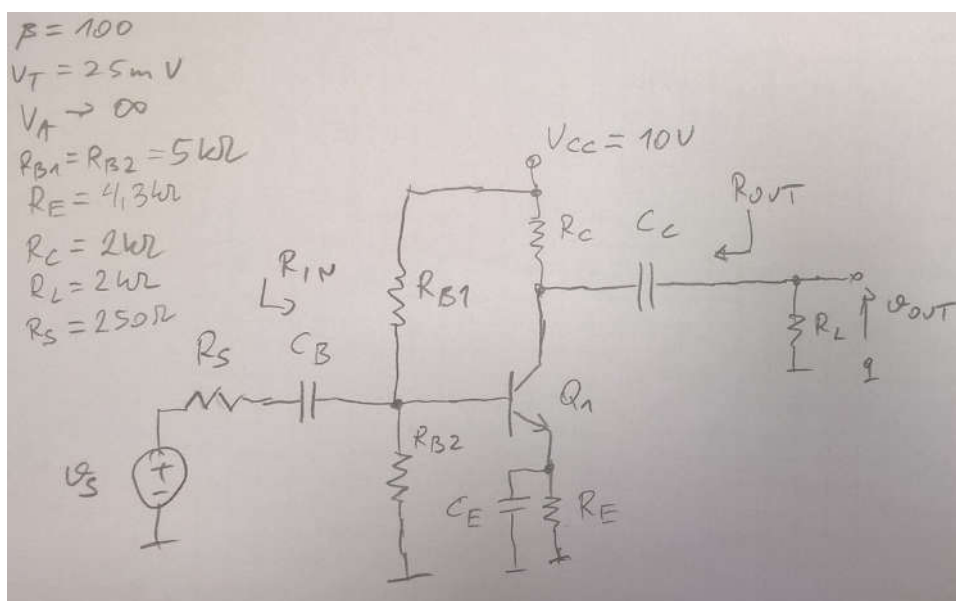 β = 100
V_T = 25 m V
V_A → ∞
R_B1 = R_B2 = 5 kΩ
R_E = 4,3 kΩ
R_C = 2 kΩ
R_L = 2 kΩ
R_S = 250 Ω
V_CC = 10 V
R_OUT
R_C
C_C
R_IN
R_B1
R_L
v_OUT
R_S
C_B
Q_1
R_B2
v_S
+
-
C_E
R_E